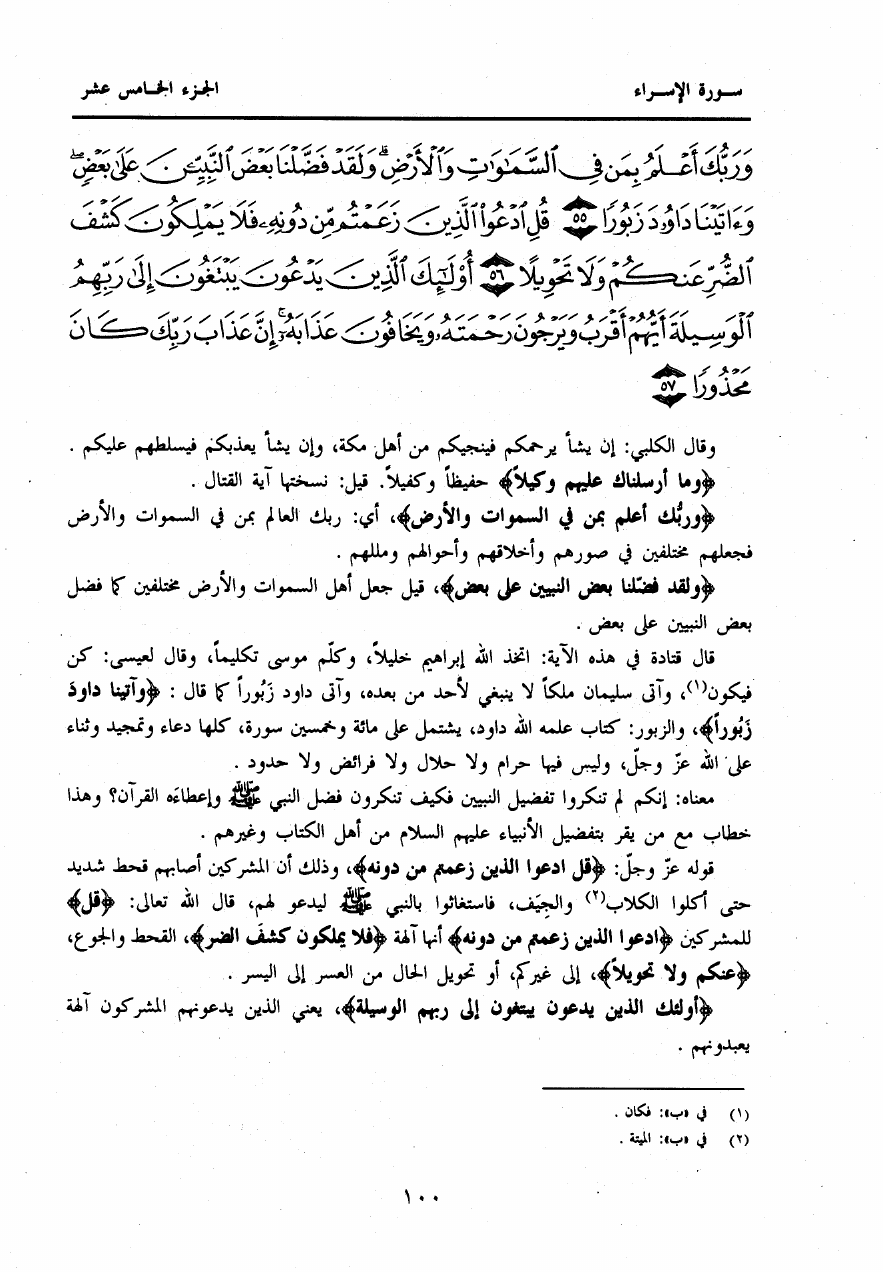 سورة الإسراء
الجزء الخامس عشر
وَرَبُّكَ أَعْلَمُ بِمَن فِي ٱلسَّمَٰوَٰتِ وَٱلْأَرْضِ ۗ وَلَقَدْ فَضَّلْنَا بَعْضَ ٱلنَّبِيِّـۧنَ عَلَىٰ بَعْضٍ ۖ
وَءَاتَيْنَا دَاوُۥدَ زَبُورًا ٥٥ قُلِ ٱدْعُوا۟ ٱلَّذِينَ زَعَمْتُم مِّن دُونِهِۦ فَلَا يَمْلِكُونَ كَشْفَ
ٱلضُّرِّ عَنكُمْ وَلَا تَحْوِيلًا ٥٦ أُو۟لَٰٓئِكَ ٱلَّذِينَ يَدْعُونَ يَبْتَغُونَ إِلَىٰ رَبِّهِمُ
ٱلْوَسِيلَةَ أَيُّهُمْ أَقْرَبُ وَيَرْجُونَ رَحْمَتَهُۥ وَيَخَافُونَ عَذَابَهُۥٓ ۚ إِنَّ عَذَابَ رَبِّكَ كَانَ
مَحْذُورًا ٥٧
وقال الكلبي: إن يشأ يرحمكم فينجيكم من أهل مكة، وإن يشأ يعذبكم فيسلطهم عليكم .
﴿وما أرسلناك عليهم وكيلاً﴾ حفيظاً وكفيلاً. قيل: نسختها آية القتال .
﴿وربُّك أعلم بمن في السموات والأرض﴾، أي: ربك العالم بمن في السموات والأرض
فجعلهم مختلفين في صورهم وأخلاقهم وأحوالهم ومللهم .
﴿ولقد فضّلنا بعض النبيين على بعض﴾، قيل جعل أهل السموات والأرض مختلفين كما فضل
بعض النبيين على بعض .
قال قتادة في هذه الآية: اتخذ الله إبراهيم خليلاً، وكلّم موسى تكليماً، وقال لعيسى: كن
فيكون(١)، وآتى سليمان ملكاً لا ينبغي لأحد من بعده، وآتى داود زَبُوراً كما قال : ﴿وآتينا داودَ
زَبُوراً﴾، والزبور: كتاب علمه الله داود، يشتمل على مائة وخمسين سورة، كلها دعاء وتمجيد وثناء
على الله عزّ وجلّ، وليس فيها حرام ولا حلال ولا فرائض ولا حدود .
معناه: إنكم لم تنكروا تفضيل النبيين فكيف تنكرون فضل النبي ﷺ وإعطاءَه القرآن؟ وهذا
خطاب مع من يقر بتفضيل الأنبياء عليهم السلام من أهل الكتاب وغيرهم .
قوله عزّ وجلّ: ﴿قل ادعوا الذين زعمتم من دونه﴾، وذلك أن المشركين أصابهم قحط شديد
حتى أكلوا الكلاب(٢) والجِيَف، فاستغاثوا بالنبي ﷺ ليدعو لهم، قال الله تعالى: ﴿قل﴾
للمشركين ﴿ادعوا الذين زعمتم من دونه﴾ أنها آلهة ﴿فلا يملكون كشفَ الضر﴾، القحط والجوع،
﴿عنكم ولا تحويلاً﴾، إلى غيركم، أو تحويل الحال من العسر إلى اليسر .
﴿أولئك الذين يدعون يبتغون إلى ربهم الوسيلة﴾، يعني الذين يدعونهم المشركون آلهة
يعبدونهم .
(١) في «ب»: فكان .
(٢) في «ب»: الميتة .
١٠٠